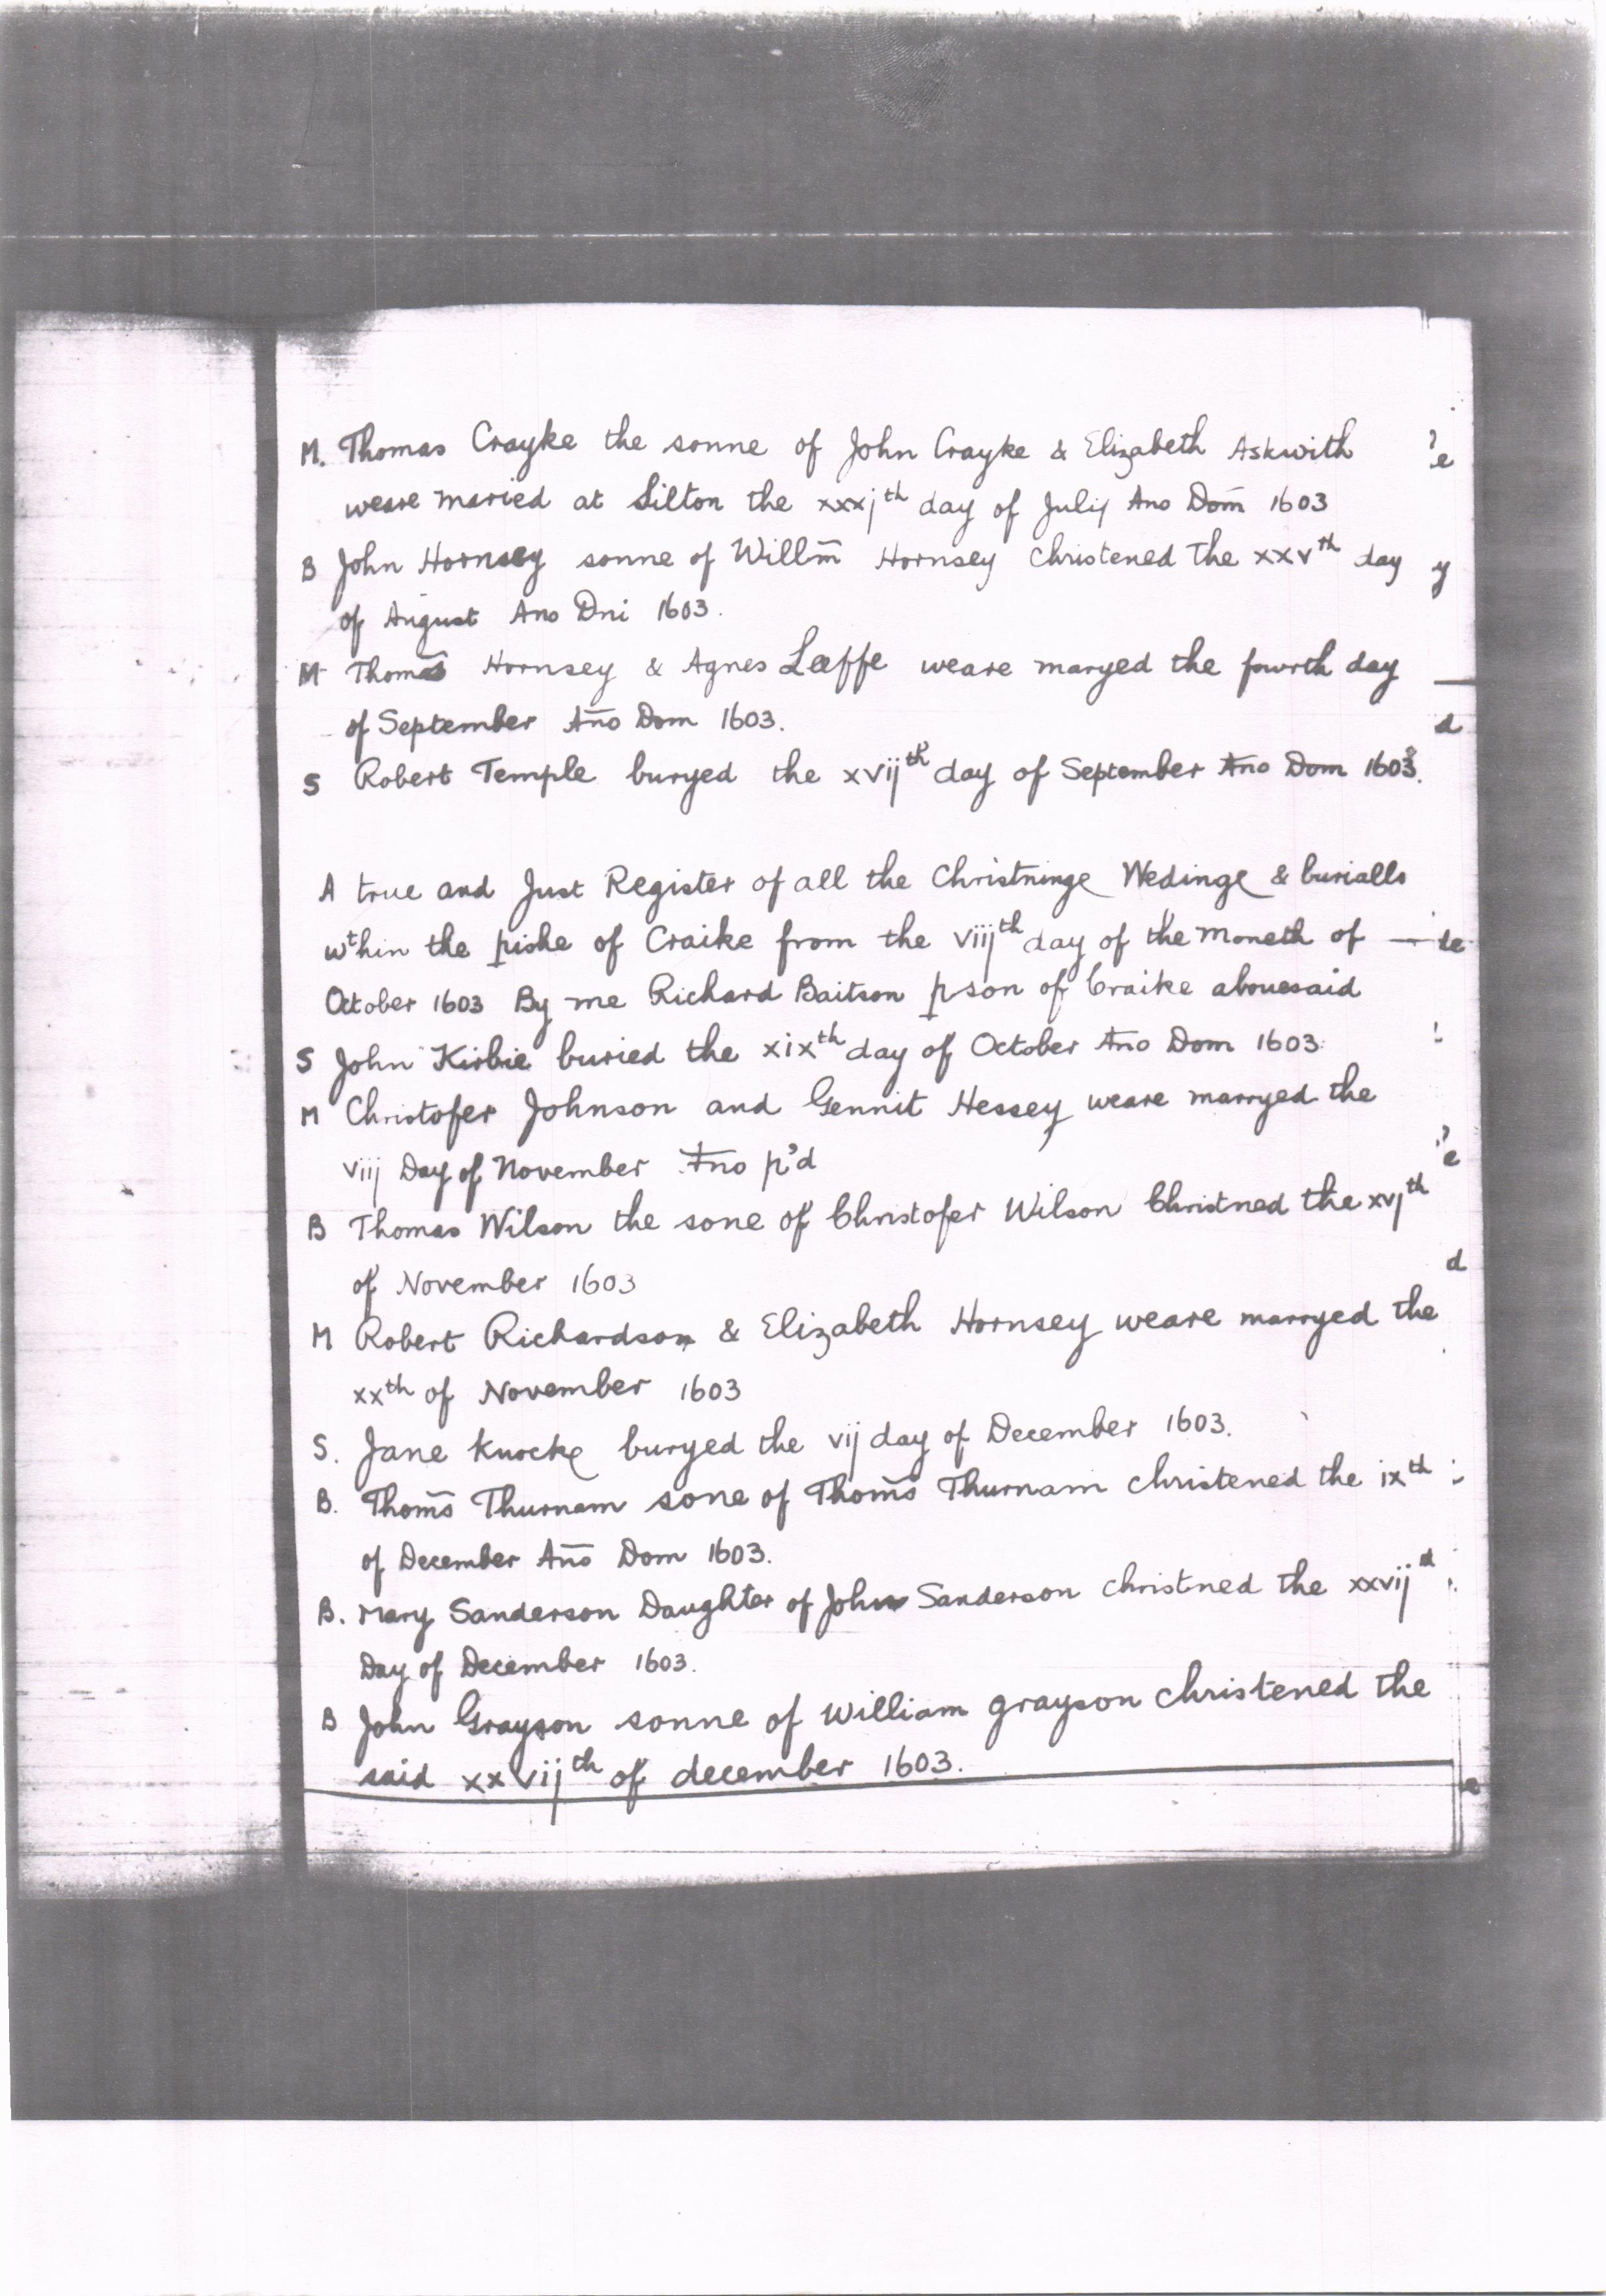 M. Thomas Crayke the sonne of John Crayke & Elizabeth Askwith
weare maried at Silton the xxxjth day of July Ano Dom̄ 1603
B John Hornsey sonne of Willm̄ Hornsey Christened the xxvth day
of August Ano Dni 1603.
M Thomas Hornsey & Agnes Leeffe weare maryed the fourth day
of September An̄o Dom 1603.
S Robert Temple buryed the xvijth day of September Ano Dom 1603.
A true and Just Register of all the Christninge Wedinge & burialls
wthin the pishe of Craike from the viijth day of the Moneth of
October 1603 By me Richard Baitson pson of Craike abouesaid
S John Kirbie buried the xixth day of October Ano Dom 1603
M Christofer Johnson and Gennit Hessey weare marryed the
viij Day of November Ano p'd
B Thomas Wilson the sone of Christofer Wilson Christned the xvjth
of November 1603
M Robert Richardson & Elizabeth Hornsey weare marryed the
xxth of November 1603
S. Jane buryed the vij day of December 1603.
B. Thom̄s Thurnam sone of Thom̄s Thurnam christened the ixth
of December An̄o Dom 1603.
B. Mary Sanderson Daughter of John Sanderson christned the xxvij
Day of December 1603.
B John Grayson sonne of William grayson christened the
said xxvijth of december 1603.